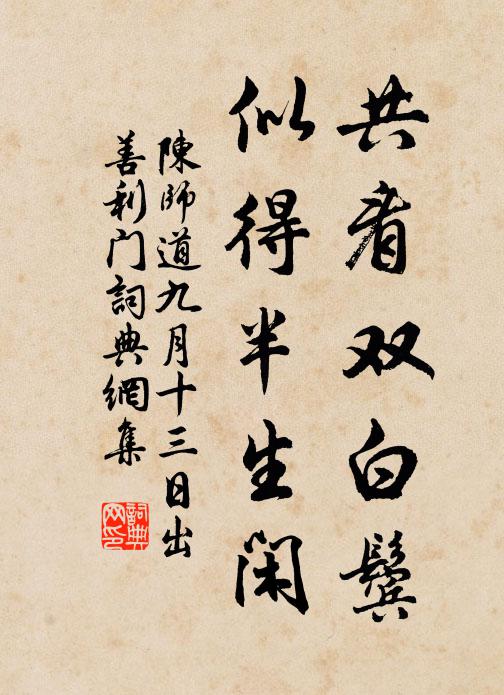 共看双白鬓
似得半生闲
陳師道九月十三日出
善利门詞典網集
詞典
网印